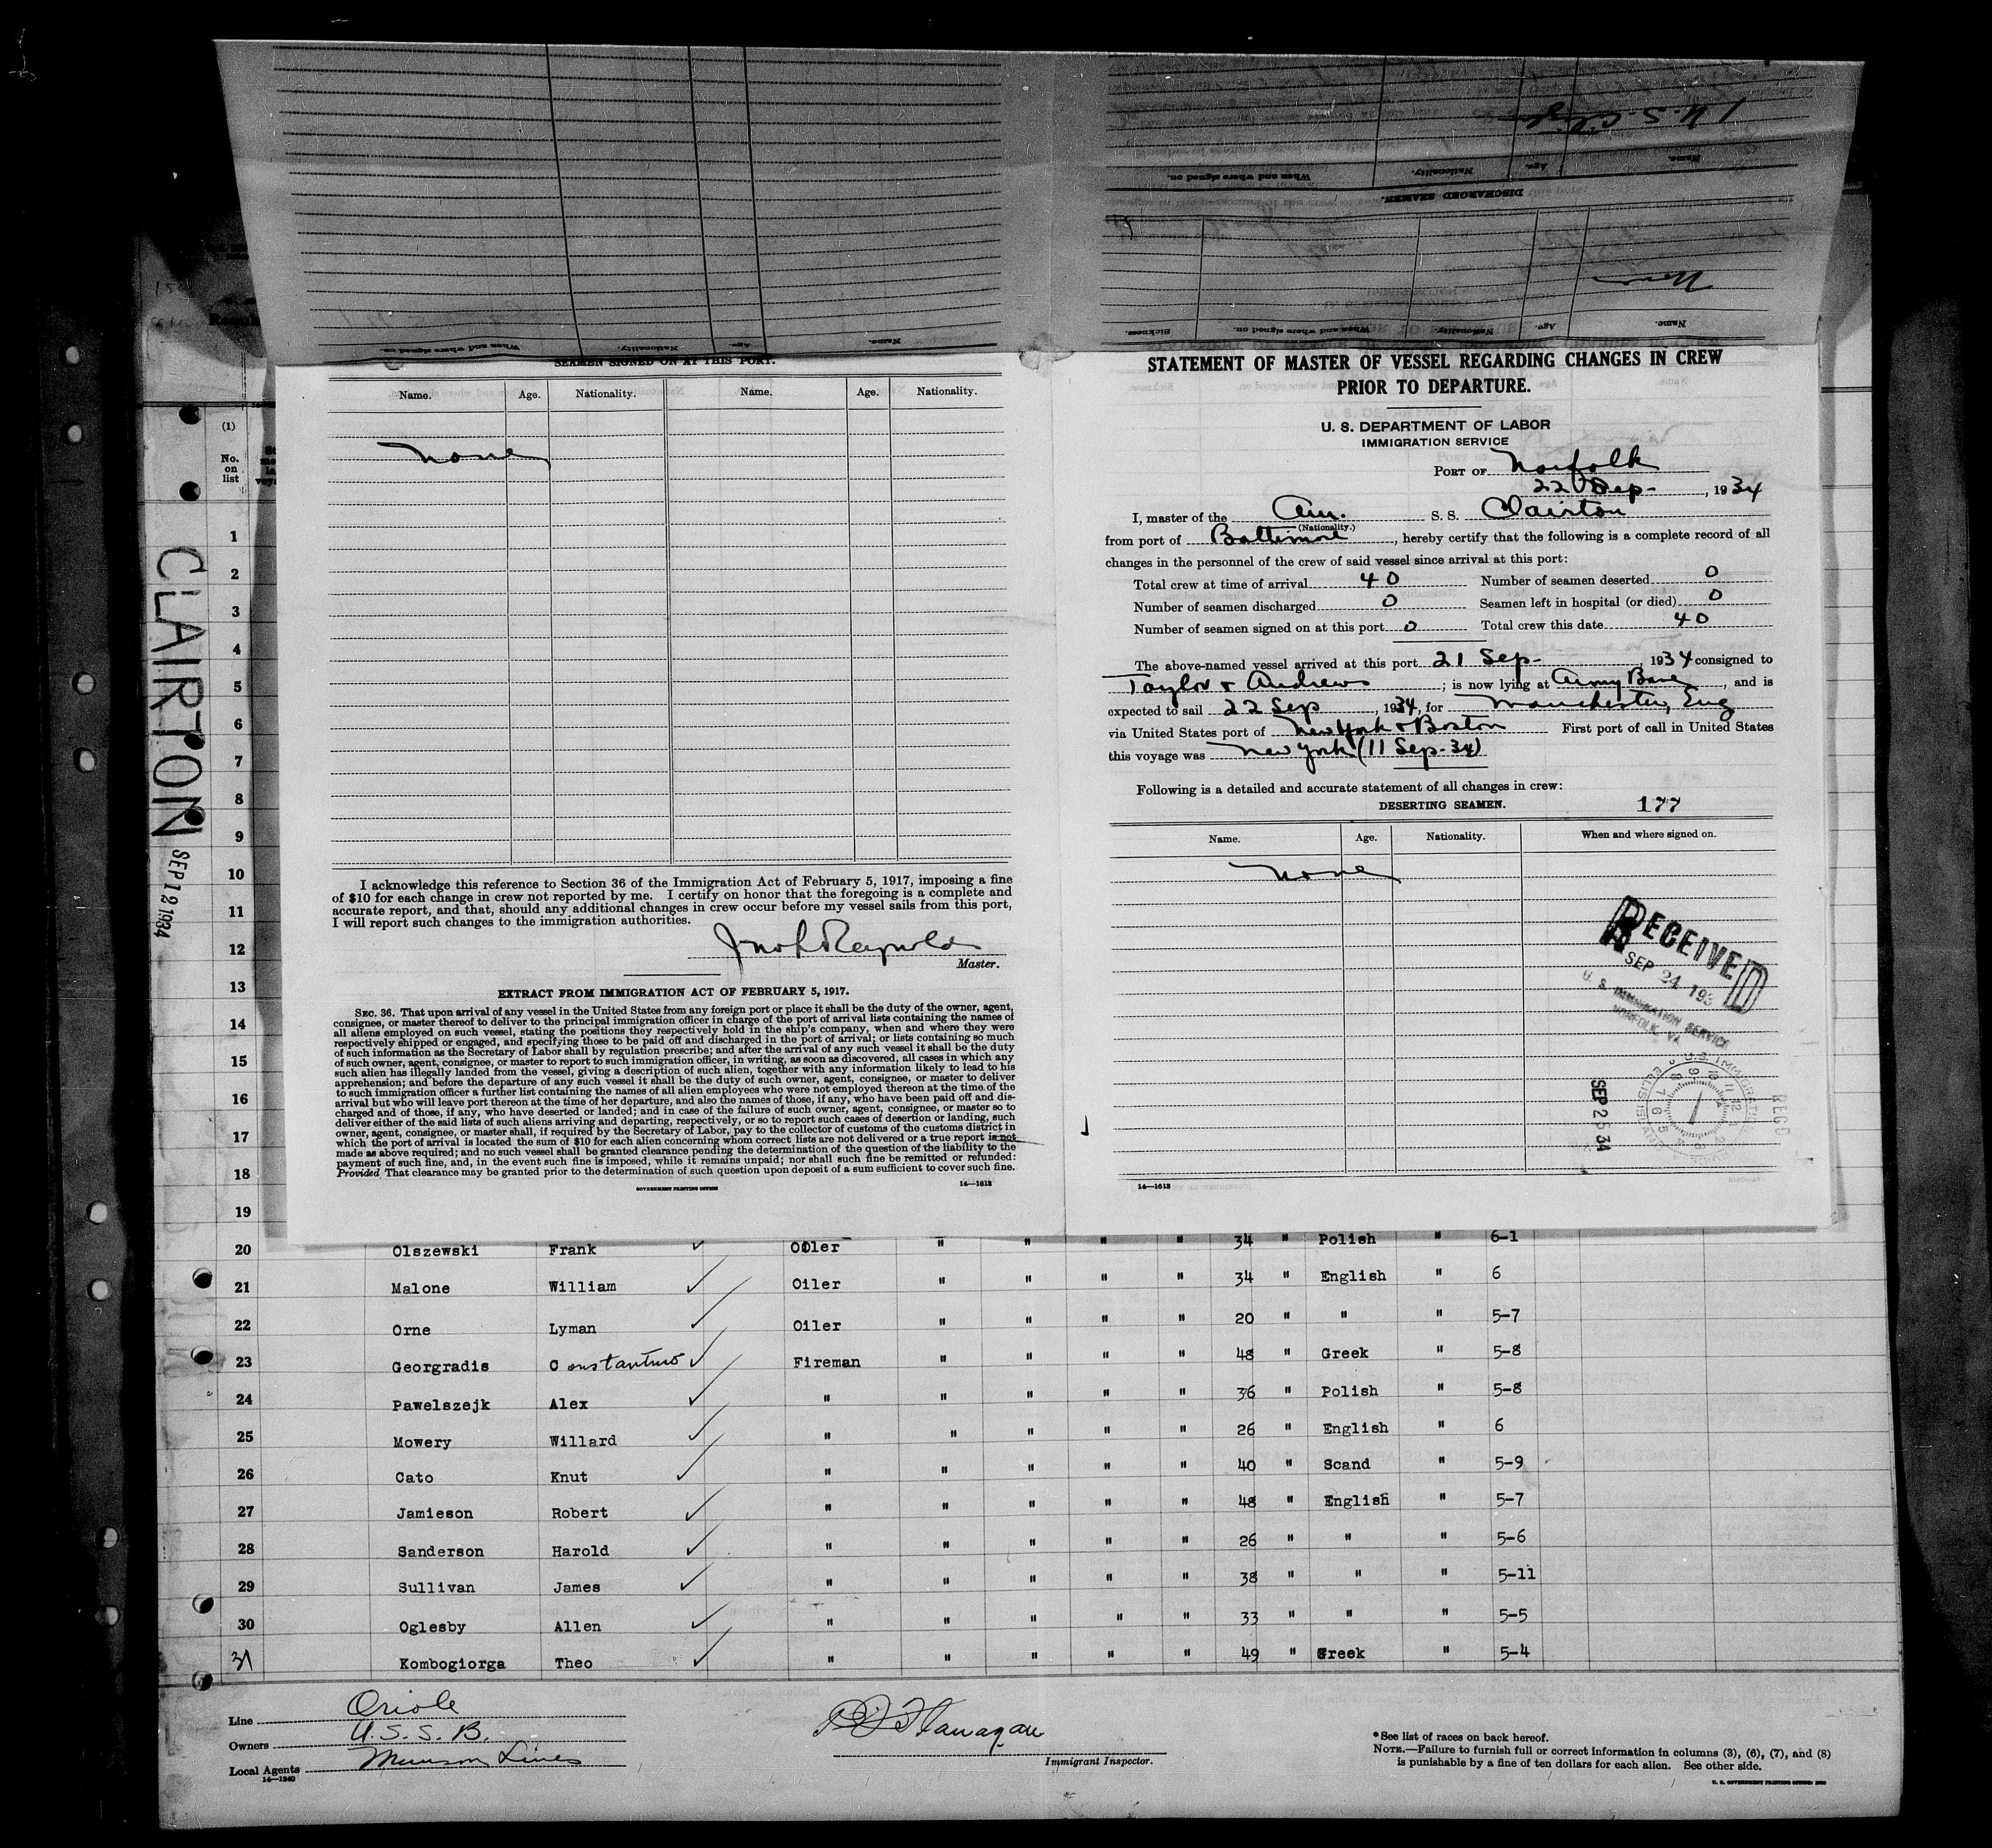 1 U. S. Citizen
Name. Age. Nationality. When and where signed on.
DISCHARGED SEAMEN.
None
Name. Age. Nationality. When and where signed on. Sickness.
Name. Age. Nationality. When and where signed on.
SEAMEN SIGNED ON AT THIS PORT.
Name. Age. Nationality. Name. Age. Nationality.
None
I acknowledge this reference to Section 36 of the Immigration Act of February 5, 1917, imposing a fine
of $10 for each change in crew not reported by me. I certify on honor that the foregoing is a complete and
accurate report, and that, should any additional changes in crew occur before my vessel sails from this port,
I will report such changes to the immigration authorities.
Jno L Reynolds
Master.
EXTRACT FROM IMMIGRATION ACT OF FEBRUARY 5, 1917.
SEC. 36. That upon arrival of any vessel in the United States from any foreign port or place it shall be the duty of the owner, agent,
consignee, or master thereof to deliver to the principal immigration officer in charge of the port of arrival lists containing the names of
all aliens employed on such vessel, stating the positions they respectively hold in the ship's company, when and where they were
respectively shipped or engaged, and specifying those to be paid off and discharged in the port of arrival; or lists containing so much
of such information as the Secretary of Labor shall by regulation prescribe; and after the arrival of any such vessel it shall be the duty
of such owner, agent, consignee, or master to report to such immigration officer, in writing, as soon as discovered, all cases in which any
such alien has illegally landed from the vessel, giving a description of such alien, together with any information likely to lead to his
apprehension; and before the departure of any such vessel it shall be the duty of such owner, agent, consignee, or master to deliver
to such immigration officer a further list containing the names of all alien employees who were not employed thereon at the time of the
arrival but who will leave port thereon at the time of her departure, and also the names of those, if any, who have been paid off and dis-
charged and of those, if any, who have deserted or landed; and in case of the failure of such owner, agent, consignee, or master so to
deliver either of the said lists of such aliens arriving and departing, respectively, or so to report such cases of desertion or landing, such
owner, agent, consignee, or master shall, if required by the Secretary of Labor, pay to the collector of customs of the customs district in
which the port of arrival is located the sum of $10 for each alien concerning whom correct lists are not delivered or a true report is not
made as above required; and no such vessel shall be granted clearance pending the determination of the question of the liability to the
payment of such fine, and, in the event such fine is imposed, while it remains unpaid; nor shall such fine be remitted or refunded:
Provided That clearance may be granted prior to the determination of such question upon deposit of a sum sufficient to cover such fine.
GOVERNMENT PRINTING OFFICE 14—1613
STATEMENT OF MASTER OF VESSEL REGARDING CHANGES IN CREW
PRIOR TO DEPARTURE.
U. S. DEPARTMENT OF LABOR
IMMIGRATION SERVICE
PORT OF Norfolk
22 Sep-, 1934
I, master of the Am. S. S. Clairton
(Nationality.)
from port of Baltimore, hereby certify that the following is a complete record of all
changes in the personnel of the crew of said vessel since arrival at this port:
Total crew at time of arrival 40 Number of seamen deserted 0
Number of seamen discharged 0 Seamen left in hospital (or died) 0
Number of seamen signed on at this port 0 Total crew this date 40
The above-named vessel arrived at this port 21 Sep-, 1934 consigned to
Taylor & Andrews; is now lying at Army Base, and is
expected to sail 22 Sep, 1934, for Manchester, Eng
via United States port of New York & Boston First port of call in United States
this voyage was New York (11 Sep-34)
Following is a detailed and accurate statement of all changes in crew:
DESERTING SEAMEN. 177
Name. Age. Nationality. When and where signed on.
None
RECEIVED
SEP 24 193
U. S. IMMIGRATION SERVICE
NORFOLK, VA
SEP 25 34
U.S. IMMIGRATION
ELLIS ISLAND
REC'D
14—1613
CLAIRTON SEP 12 1934
(1)
No.
on
list
1
2
3
4
5
6
7
8
9
10
11
12
13
14
15
16
17
18
19
20 Olszewski Frank Oiler " " " " 34 " Polish " 6-1
21 Malone William Oiler " " " " 34 " English " 6
22 Orne Lyman Oiler " " " " 20 " " " 5-7
23 Georgradis Constantino Fireman " " " " 48 " Greek " 5-8
24 Pawelszejk Alex " " " " " 36 " Polish " 5-8
25 Mowery Willard " " " " " 26 " English " 6
26 Cato Knut " " " " " 40 " Scand " 5-9
27 Jamieson Robert " " " " " 48 " English " 5-7
28 Sanderson Harold " " " " " 26 " " " 5-6
29 Sullivan James " " " " " 38 " " " 5-11
30 Oglesby Allen " " " " " 33 " " " 5-5
31 Kombogiorga Theo " " " " " 49 " Greek " 5-4
Line Oriole
Owners U.S.S.B.
Local Agents Munson Lines
14—1240
Flanagan
Immigrant Inspector.
*See list of races on back hereof.
NOTE.—Failure to furnish full or correct information in columns (3), (6), (7), and (8)
is punishable by a fine of ten dollars for each alien. See other side.